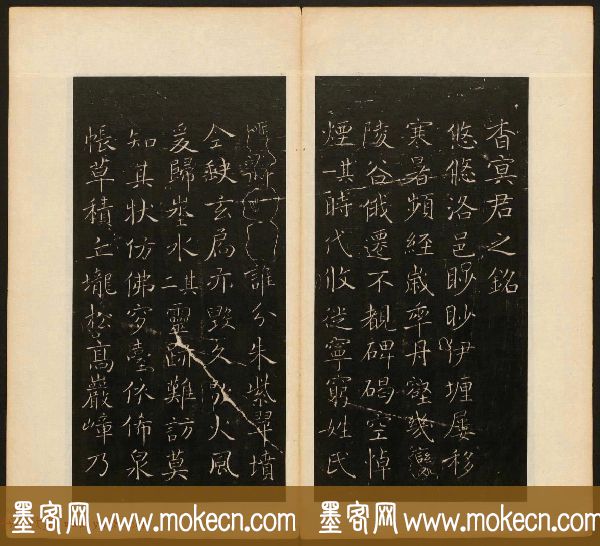 香冥君之銘
悠悠洛邑眇眇伊瀍屢移
寒暑頻經歲年丹壑幾變
陵谷俄遷不覩碑碣空悼
煙其一時代攸徙寧窮姓氏
誰分朱紫翠墳
全缺玄扃亦毀久火風
爰歸塋水其二靈跡難訪莫
知其狀仿佛穸臺依俙泉
帳草積丘壠松高巖嶂乃
墨客网 www.mokecn.com 墨客网 www.mokecn.com